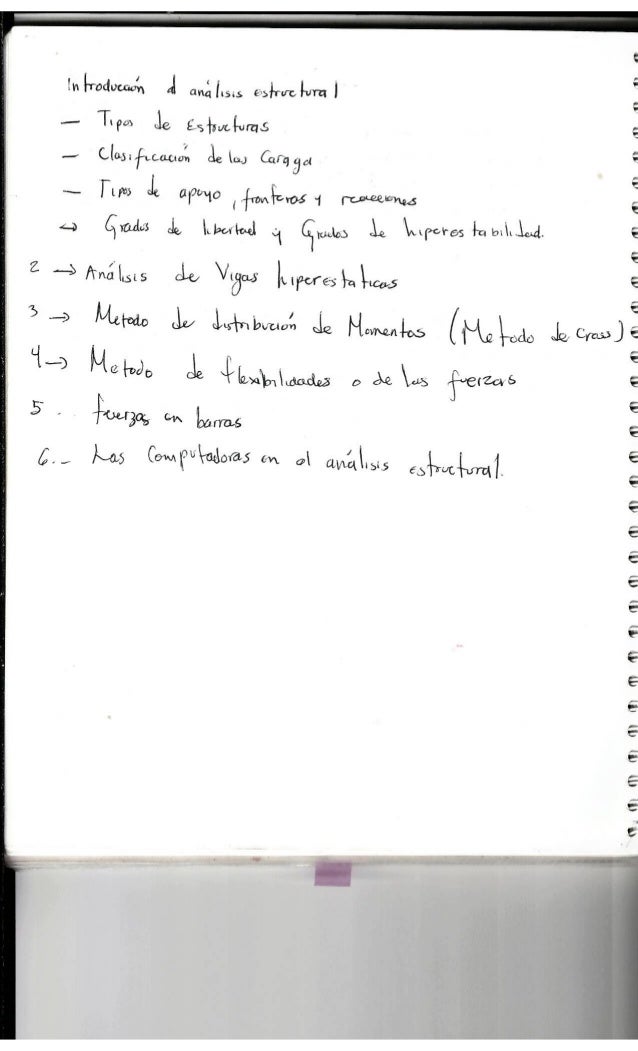 Introducción al análisis estructural
— Tipos de Estructuras
— Clasificación de las Caraga
— Tipos de apoyo, fronteras y reacciones
↔ Grados de libertad y Grados de hiperestabilidad.
2 → Análisis de Vigas hiperestaticas
3 → Metodo de distribución de Momentos (Metodo de Cross)
4 → Metodo de flexibilidades o de las fuerzas
5. fuerzas en barras
6.- Las Computadoras en el análisis estructural.